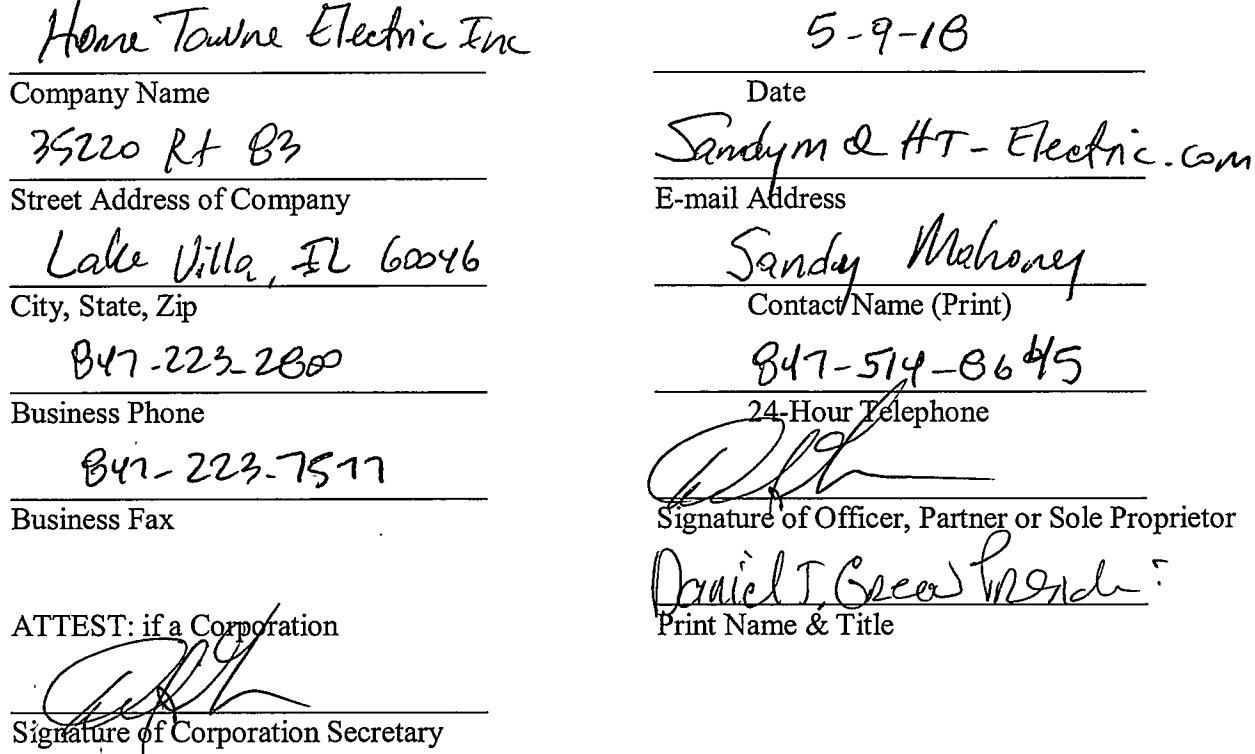 Home Towne Electric Inc
Company Name
35220 Rt 83
Street Address of Company
Lake Villa, IL 60046
City, State, Zip
847-223-2800
Business Phone
847-223-7577
Business Fax
ATTEST: if a Corporation
Signature of Corporation Secretary
5-9-18
Date
Sandym@HT-Electric.com
E-mail Address
Sandy Mahoney
Contact Name (Print)
847-514-8645
24-Hour Telephone
Signature of Officer, Partner or Sole Proprietor
Daniel T. Green
Print Name & Title